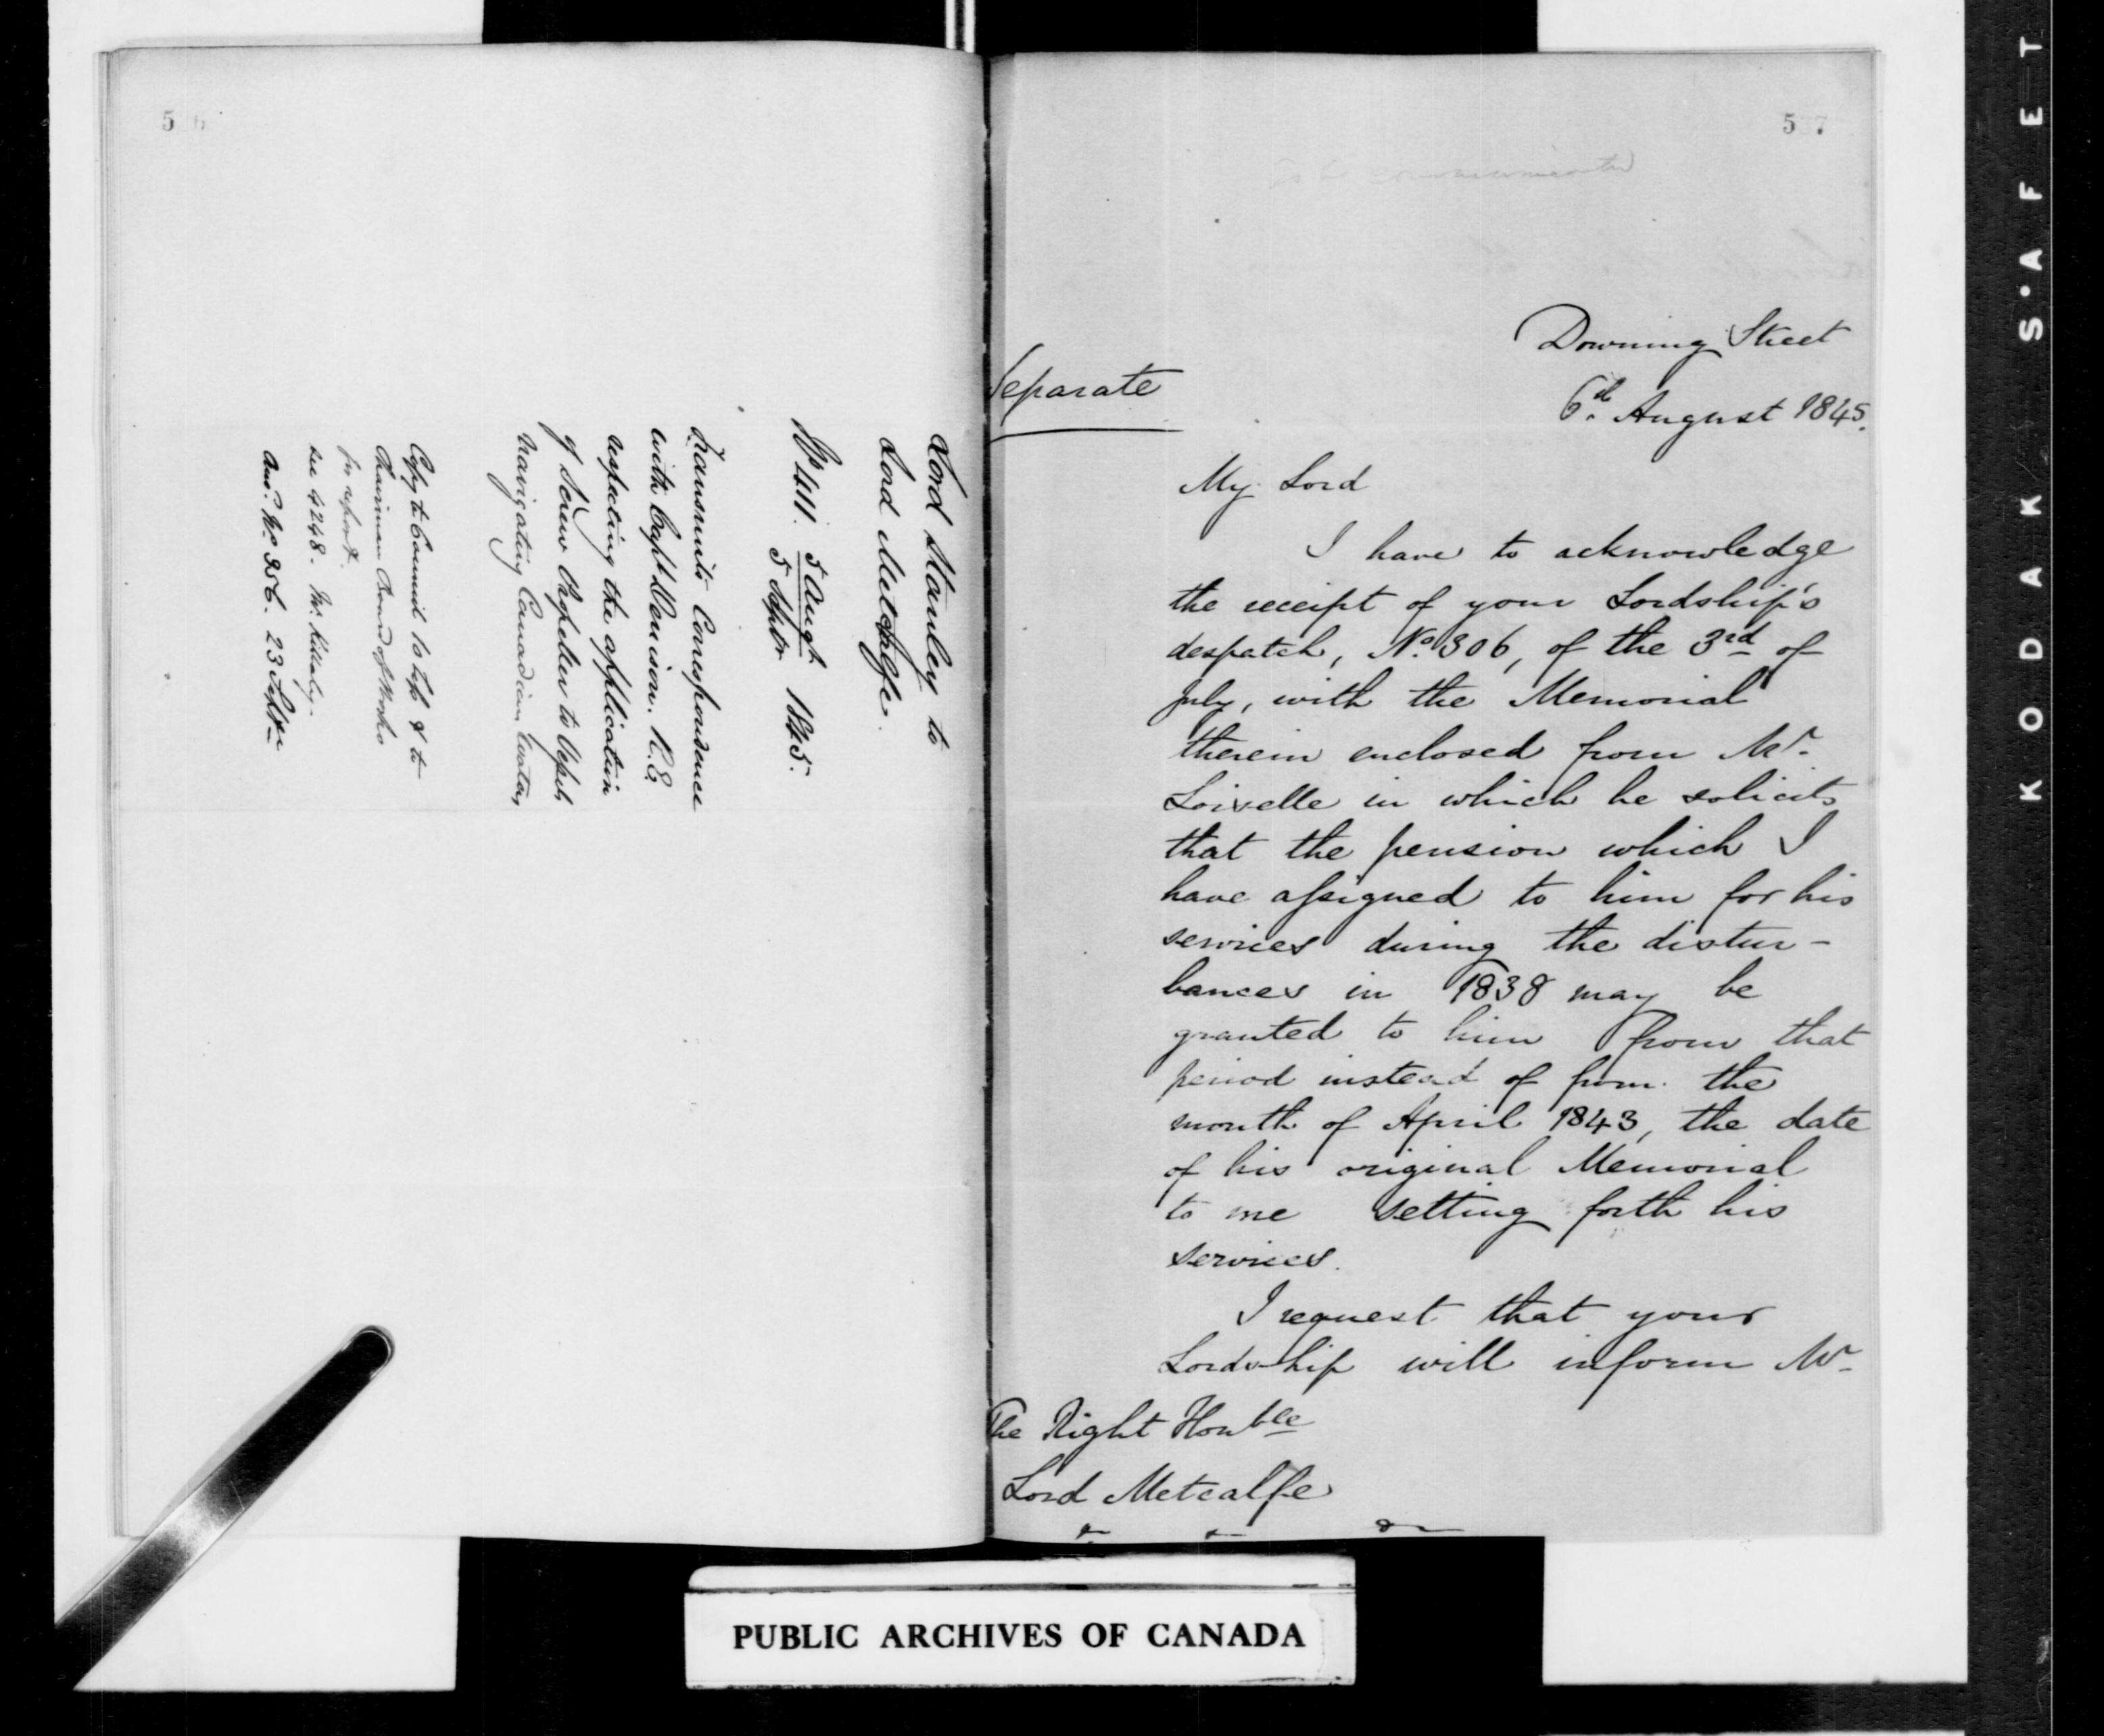 56
Lord Stanley to
Lord Metcalfe.
No 411. 5 Augt 1845.
5 Septr
Transmits Correspondence
with Capt Denison. R.E.
respecting the application
of Screw Propeller to Vessels
navigating Canadian Waters
Copy to Council 10 Sep & to
Chairman Board of Works
for report.
see 4248. Mr. Killaly.
Ansd. No. 356. 23 Septr
57
to be communicated
Downing Street
6th August 1845.
Separate
My Lord
I have to acknowledge
the receipt of your Lordship's
despatch, No. 306, of the 3rd of
July, with the Memorial
therein enclosed from Mr.
Loiselle in which he solicits
that the pension which I
have assigned to him for his
services during the distur-
bances in 1838 may be
granted to him from that
period instead of from the
month of April 1843, the date
of his original Memorial
to me setting forth his
services.
I request that your
Lordship will inform Mr
The Right Honble
Lord Metcalfe
PUBLIC ARCHIVES OF CANADA
KODAK S·AFET